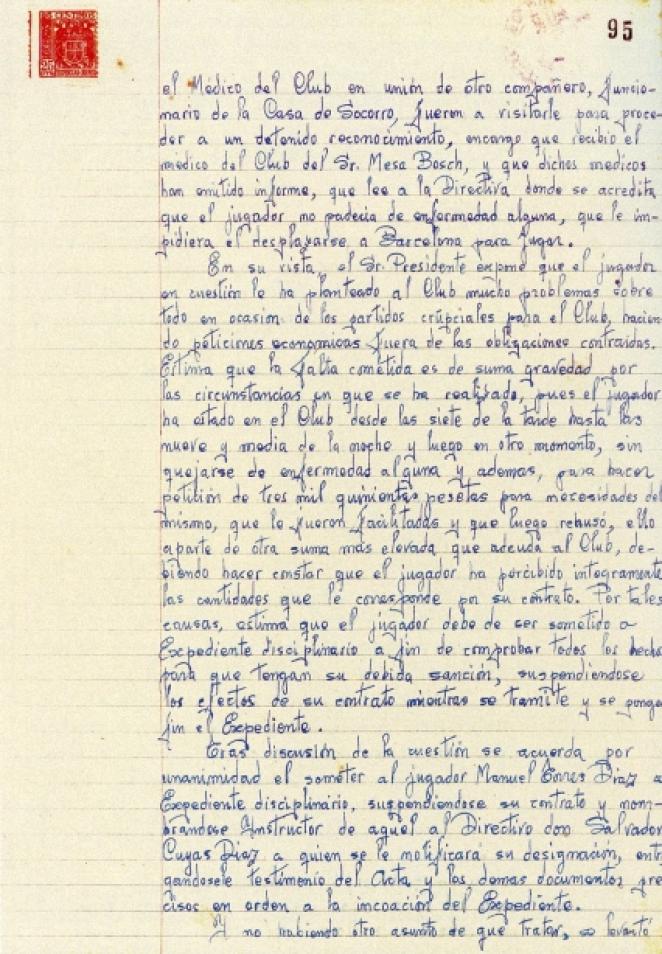 95
el Médico del Club en unión de otro compañero, funcio-
nario de la Casa de Socorro, fueron a visitarle para proce-
der a un detenido reconocimiento, encargo que recibio el
médico del Club del Sr. Mesa Bosch, y que dichos medicos
han emitido informe, que lee a la Directiva donde se acredita
que el jugador no padecia de enfermedad alguna, que le im-
pidiera el desplazarse a Barcelona para jugar.
En su vista, el Sr. Presidente expone que el jugador
en cuestión le ha planteado al Club mucho problemas sobre
todo en ocasion de los partidos crupciales para el Club, hacien-
do peticiones economicas fuera de las obligaciones contraidas.
Estima que la falta cometida es de suma gravedad por
las circunstancias en que se ha realizado, pues el jugador
ha estado en el Club desde las siete de la tarde hasta las
nueve y media de la noche y luego en otro momento, sin
quejarse de enfermedad alguna y ademas, para hacer
petición de tres mil quinientas pesetas para necesidades del
mismo, que le fueron facilitadas y que luego rehusó, ello
aparte de otra suma más elevada que adeuda al Club, de-
biendo hacer constar que el jugador ha percibido integramente
las cantidades que le corresponde por su contrato. Por tales
causas, estima que el jugador debe de ser sometido a
Expediente disciplinario a fin de comprobar todos los hecho
para que tengan su debida sanción, suspendiendose
los efectos de su contrato mientras se tramite y se ponga
fin el Expediente.
Tras discusión de la cuestión se acuerda por
unanimidad el someter al jugador Manuel Torres Diaz a
Expediente disciplinario, suspendiendose su contrato y nom-
brandose Instructor de aquel al Directivo don Salvador
Cuyas Diaz a quien se le notificará su designación, entr
gandosele testimonio del Acta y los demas documentos pre
cisos en orden a la incoación del Expediente.
Y no habiendo otro asunto de que tratar, se levantó